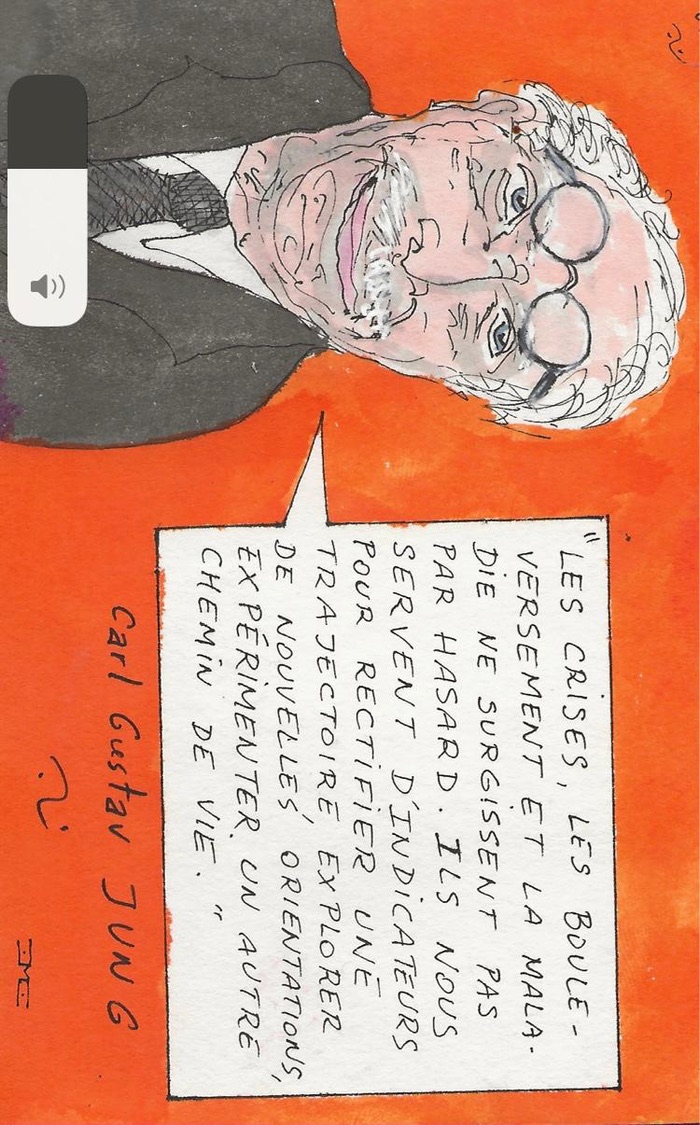 "LES CRISES, LES BOULE-
VERSEMENT ET LA MALA-
DIE NE SURGISSENT PAS
PAR HASARD. ILS NOUS
SERVENT D'INDICATEURS
POUR RECTIFIER UNE
TRAJECTOIRE EXPLORER
DE NOUVELLES ORIENTATIONS,
EXPÉRIMENTER UN AUTRE
CHEMIN DE VIE."
Carl Gustav JUNG